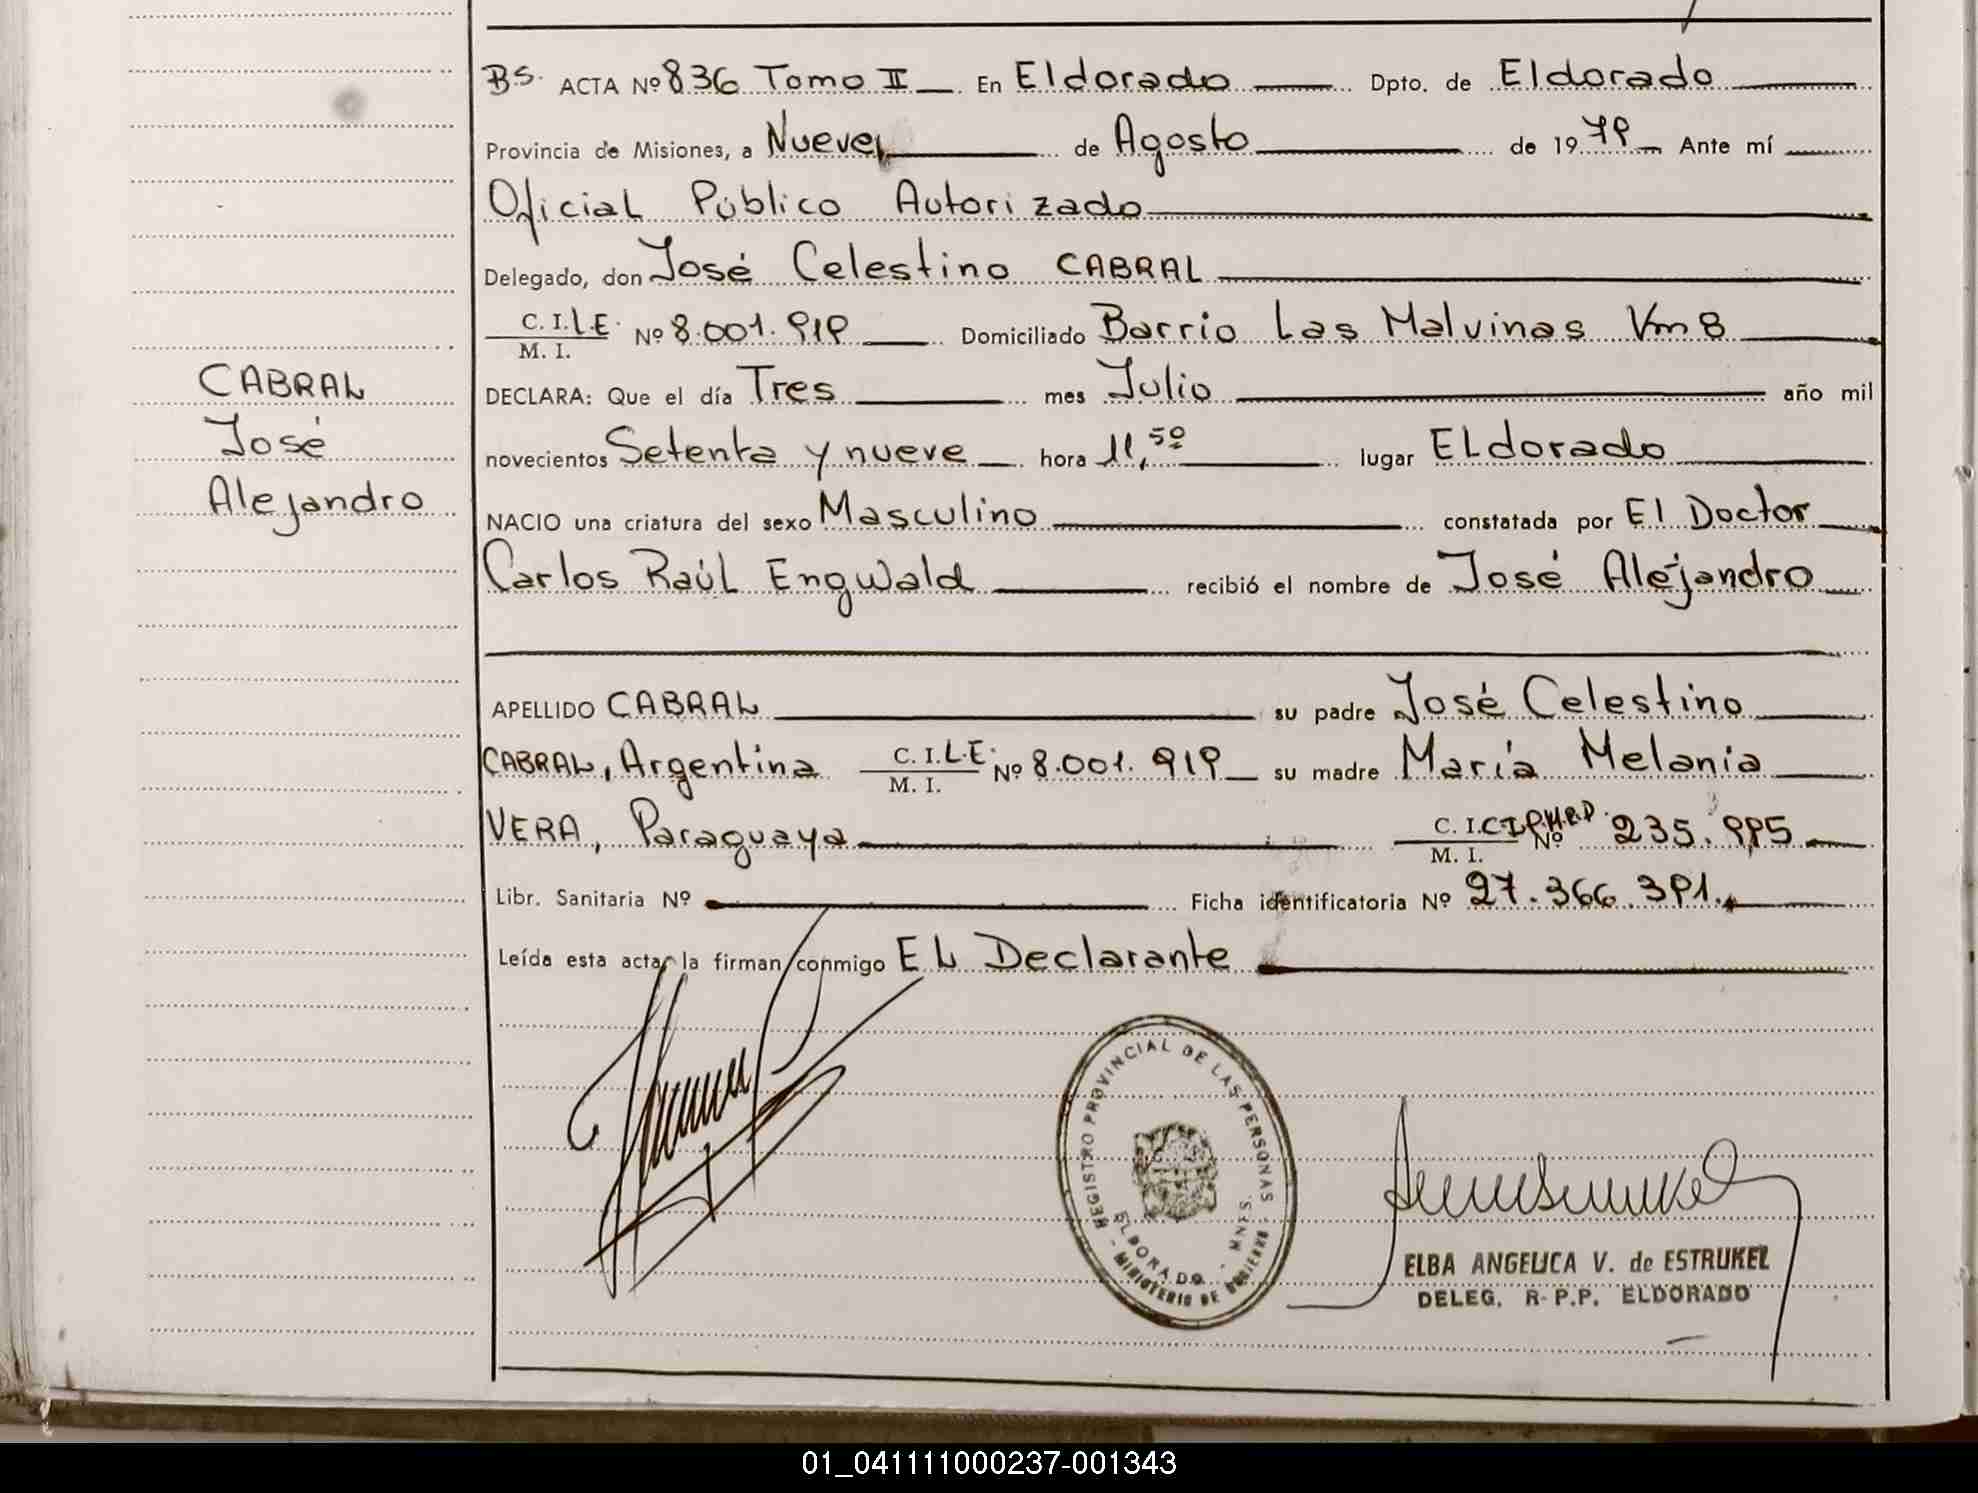 BS. ACTA Nº 836 Tomo II En Eldorado Dpto. de Eldorado
Provincia de Misiones, a Nueve de Agosto de 1979 Ante mí
Oficial Público Autorizado
Delegado, don José Celestino CABRAL
C. I. L.E. Nº 8.001.919 Domiciliado Barrio Las Malvinas Km 8
M. I.
CABRAL
José
Alejandro
DECLARA: Que el día Tres mes Julio año mil
novecientos Setenta y nueve hora 11,50 lugar ELdorado
NACIO una criatura del sexo Masculino constatada por El Doctor
Carlos Raúl Engwald recibió el nombre de José Alejandro
APELLIDO CABRAL su padre José Celestino
CABRAL, Argentina C. I. L.E. Nº 8.001.919 su madre María Melania
M. I.
VERA, Paraguaya C. I. Nº 235.995
M. I.
Libr. Sanitaria Nº Ficha identificatoria Nº 27.366.391.
Leída esta acta la firman conmigo EL Declarante
REGISTRO PROVINCIAL DE LAS PERSONAS
ELDORADO - MNES.
- MINISTERIO DE GOBIERNO -
ELBA ANGELICA V. de ESTRUKEL
DELEG. R.P.P. ELDORADO
01_041111000237-001343